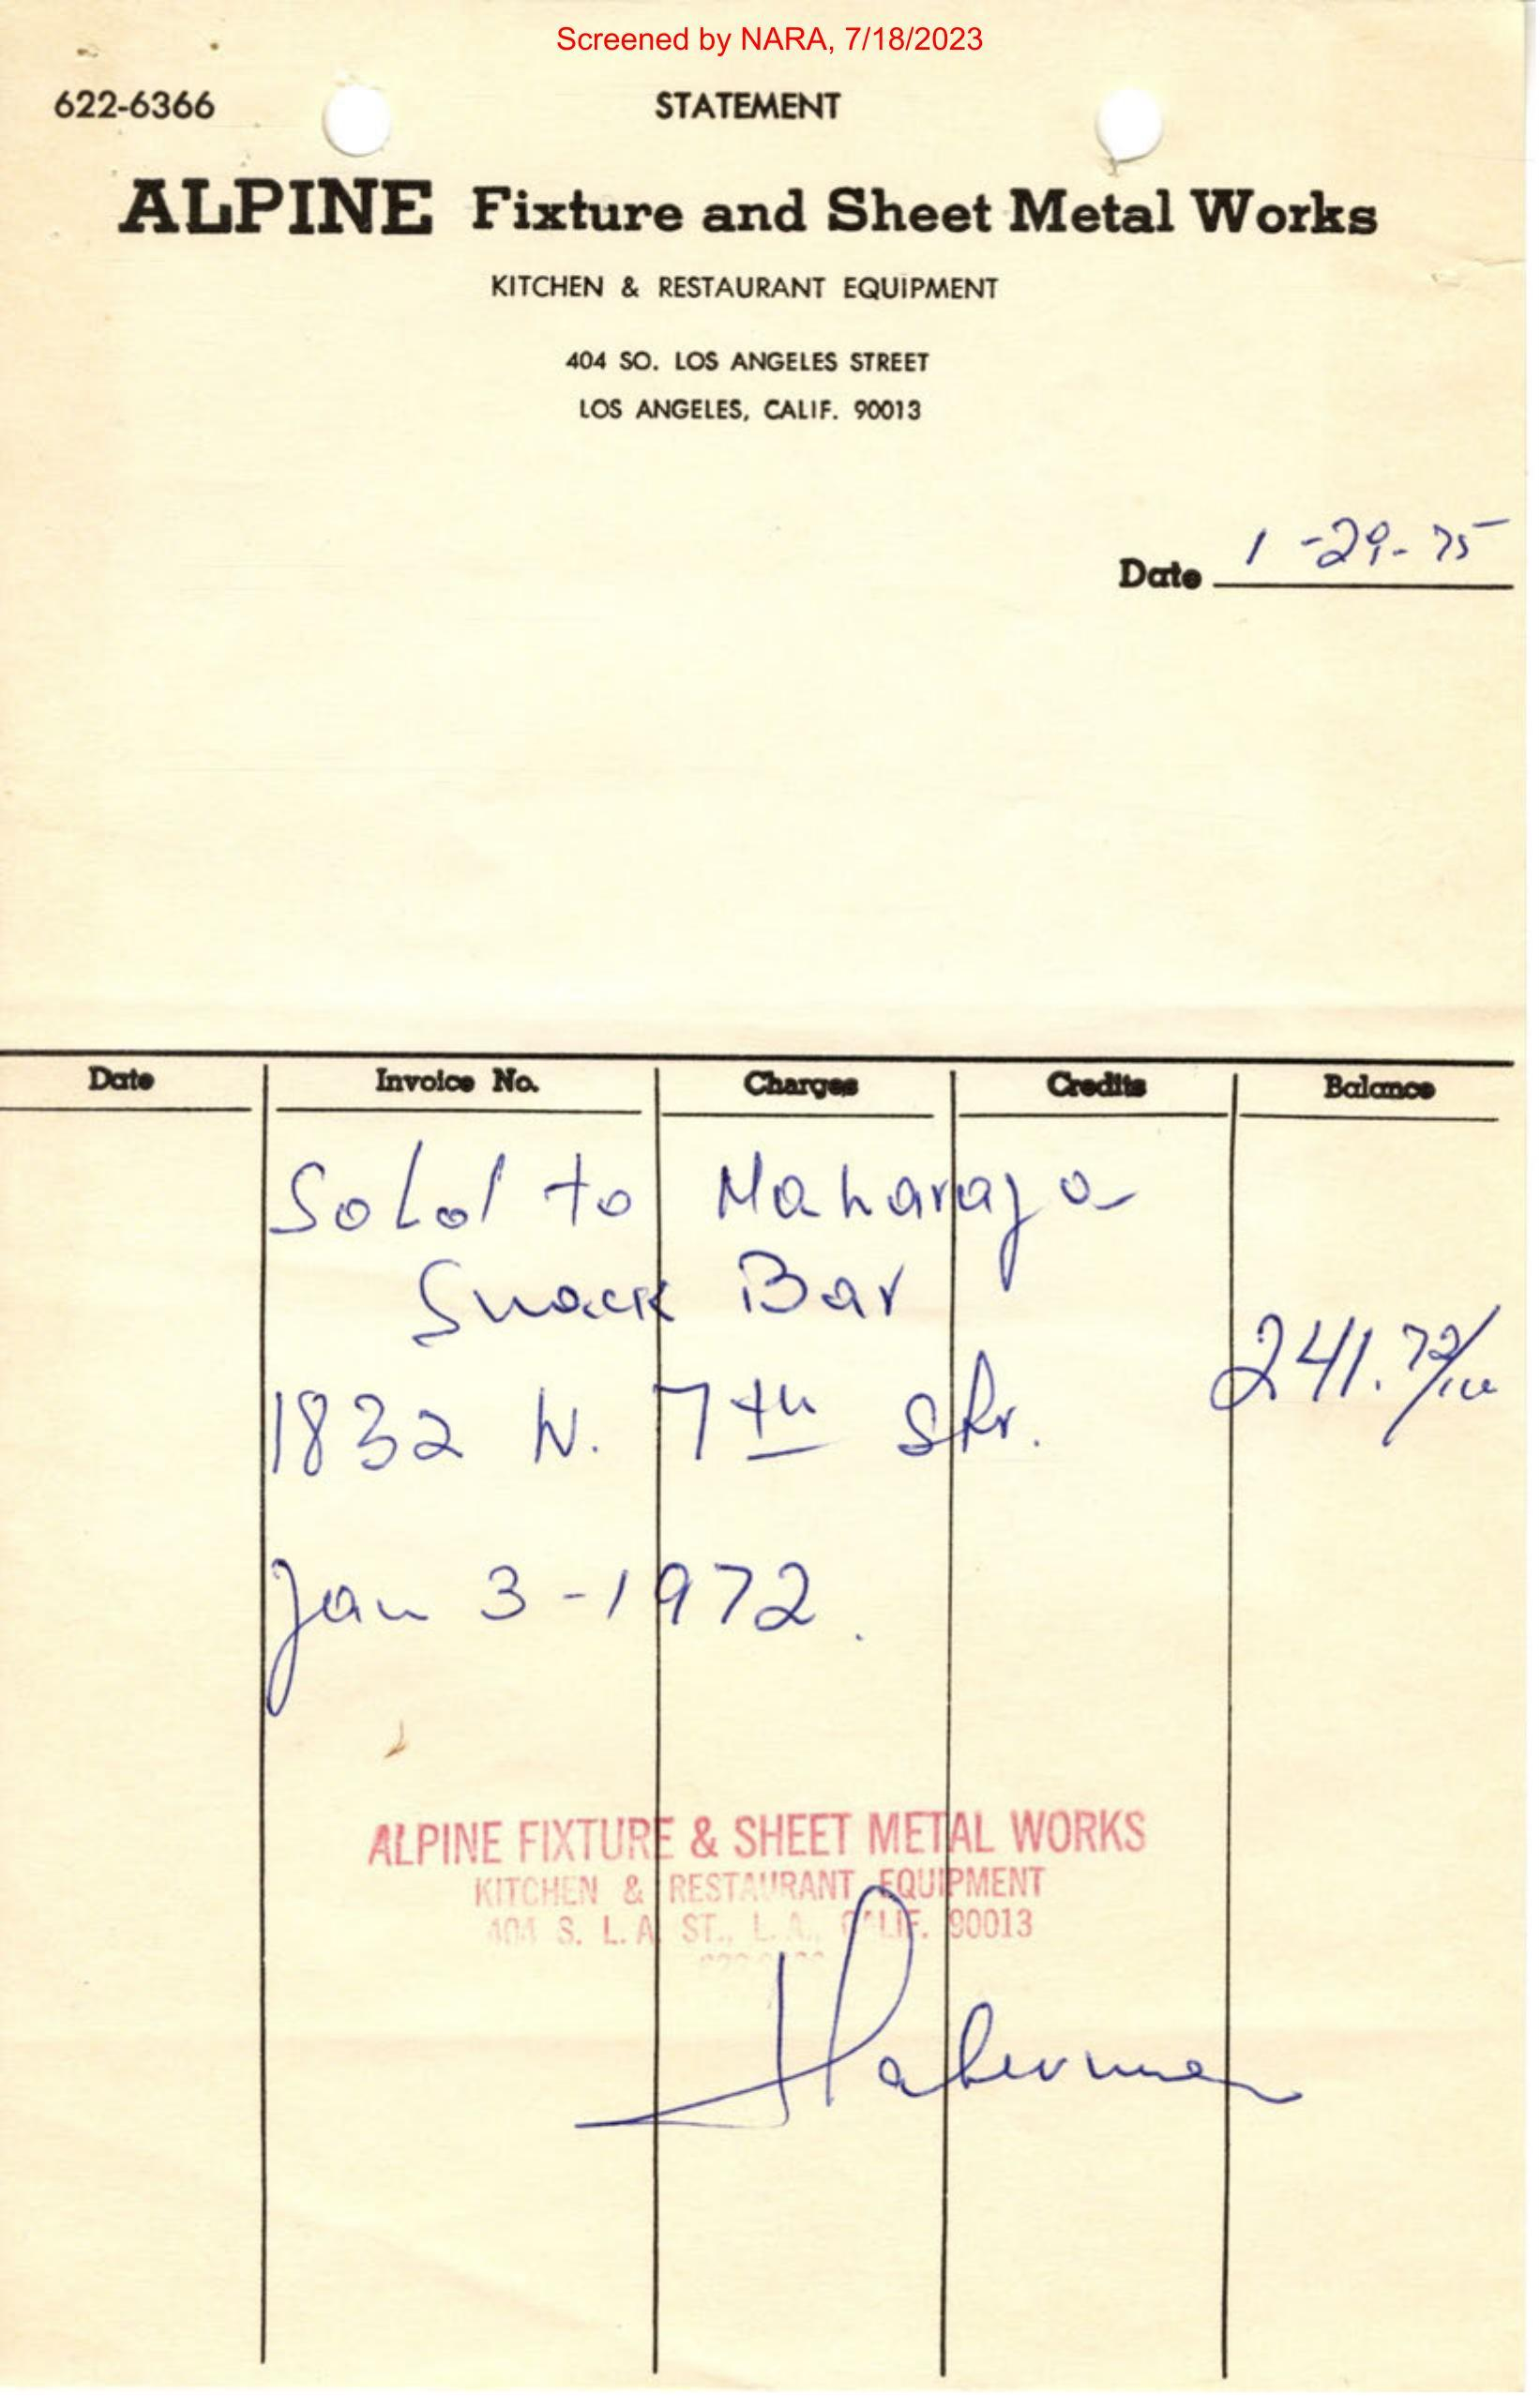 Screened by NARA, 7/18/2023
622-6366
STATEMENT
ALPINE Fixture and Sheet Metal Works
KITCHEN & RESTAURANT EQUIPMENT
404 SO. LOS ANGELES STREET
LOS ANGELES, CALIF. 90013
Date 1-29-75
Date Invoice No. Charges Credits Balance
Sold to Maharaja
Snack Bar
1832 W. 7th Str.
241.72/100
Jan 3-1972.
ALPINE FIXTURE & SHEET METAL WORKS
KITCHEN & RESTAURANT EQUIPMENT
404 S. L.A. ST., L.A., CALIF. 90013